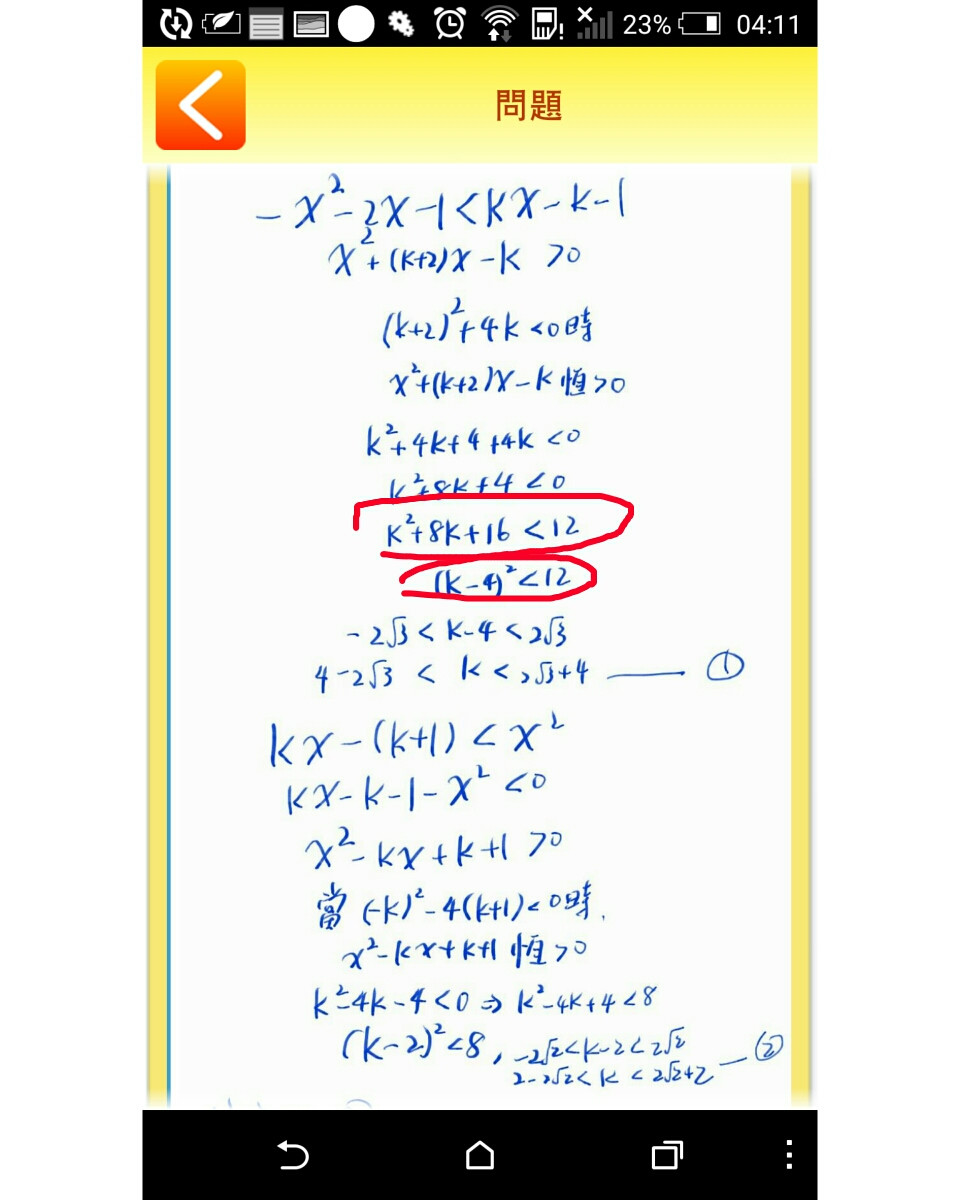 23% 04:11
問題
-x²-2x-1<kx-k-1
x²+(k+2)x-k >0
(k+2)²+4k<0時
x²+(k+2)x-k恒>0
k²+4k+4+4k<0
k²+8k+4<0
k²+8k+16<12
(k-4)²<12
-2√3<k-4<2√3
4-2√3 < k<2√3+4 —— ①
kx-(k+1)<x²
kx-k-1-x²<0
x²-kx+k+1>0
當(-k)²-4(k+1)<0時,
x²-kx+k+1恒>0
k²-4k-4<0⇒k²-4k+4<8
(k-2)²<8, -2√2<k-2<2√2
2-2√2<k<2√2+2 —②